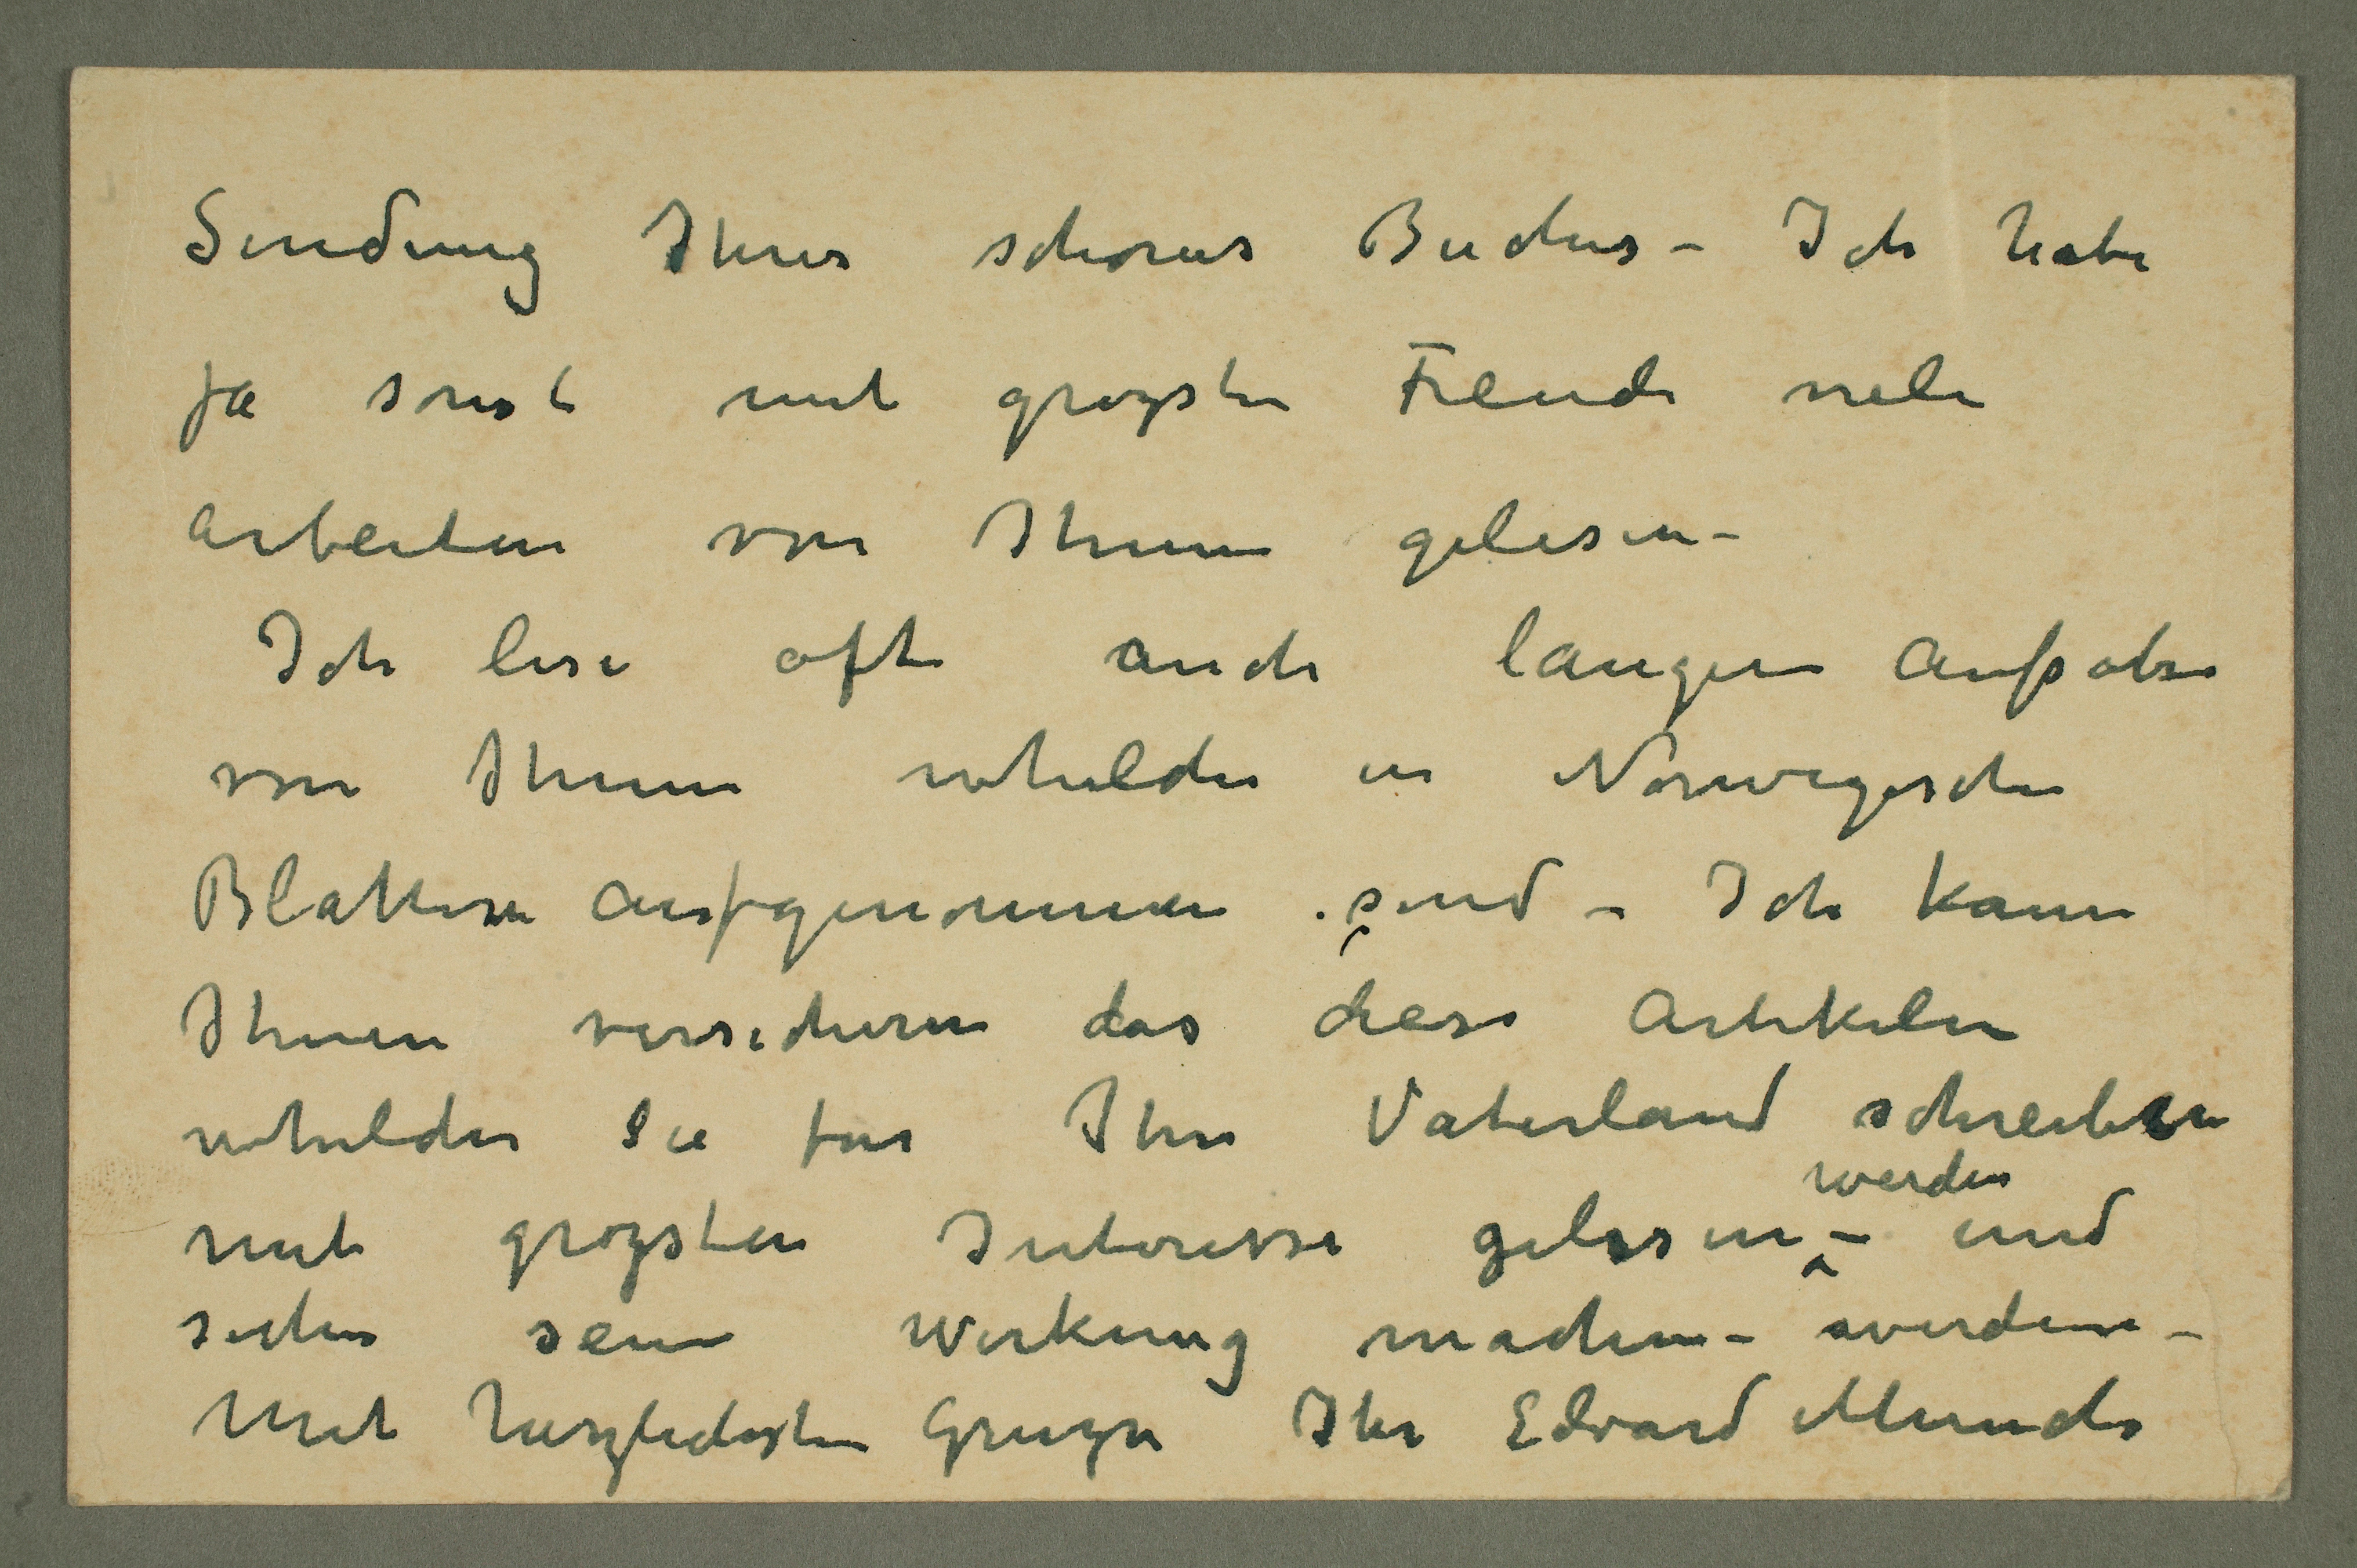 Sendung Ihres schönes Buches – Ich habe
ja sonst mit grozsten Freude viele
Arbeiten von Ihnen gelesen –
Ich lese ofte auch langen Aufsatse
von Ihnen whelche in Norwegische
Blattern aufgenommen sind – Ich kann
Ihnen versichern das diese Artikelen
whelche Sie for Ihre Vaterland schreiben
mit grozsten Interesse gelesen werden – und
sicher sein Wirkung machen – werden –
Mit herzlichsten Gruzse Ihr Edvard Munch